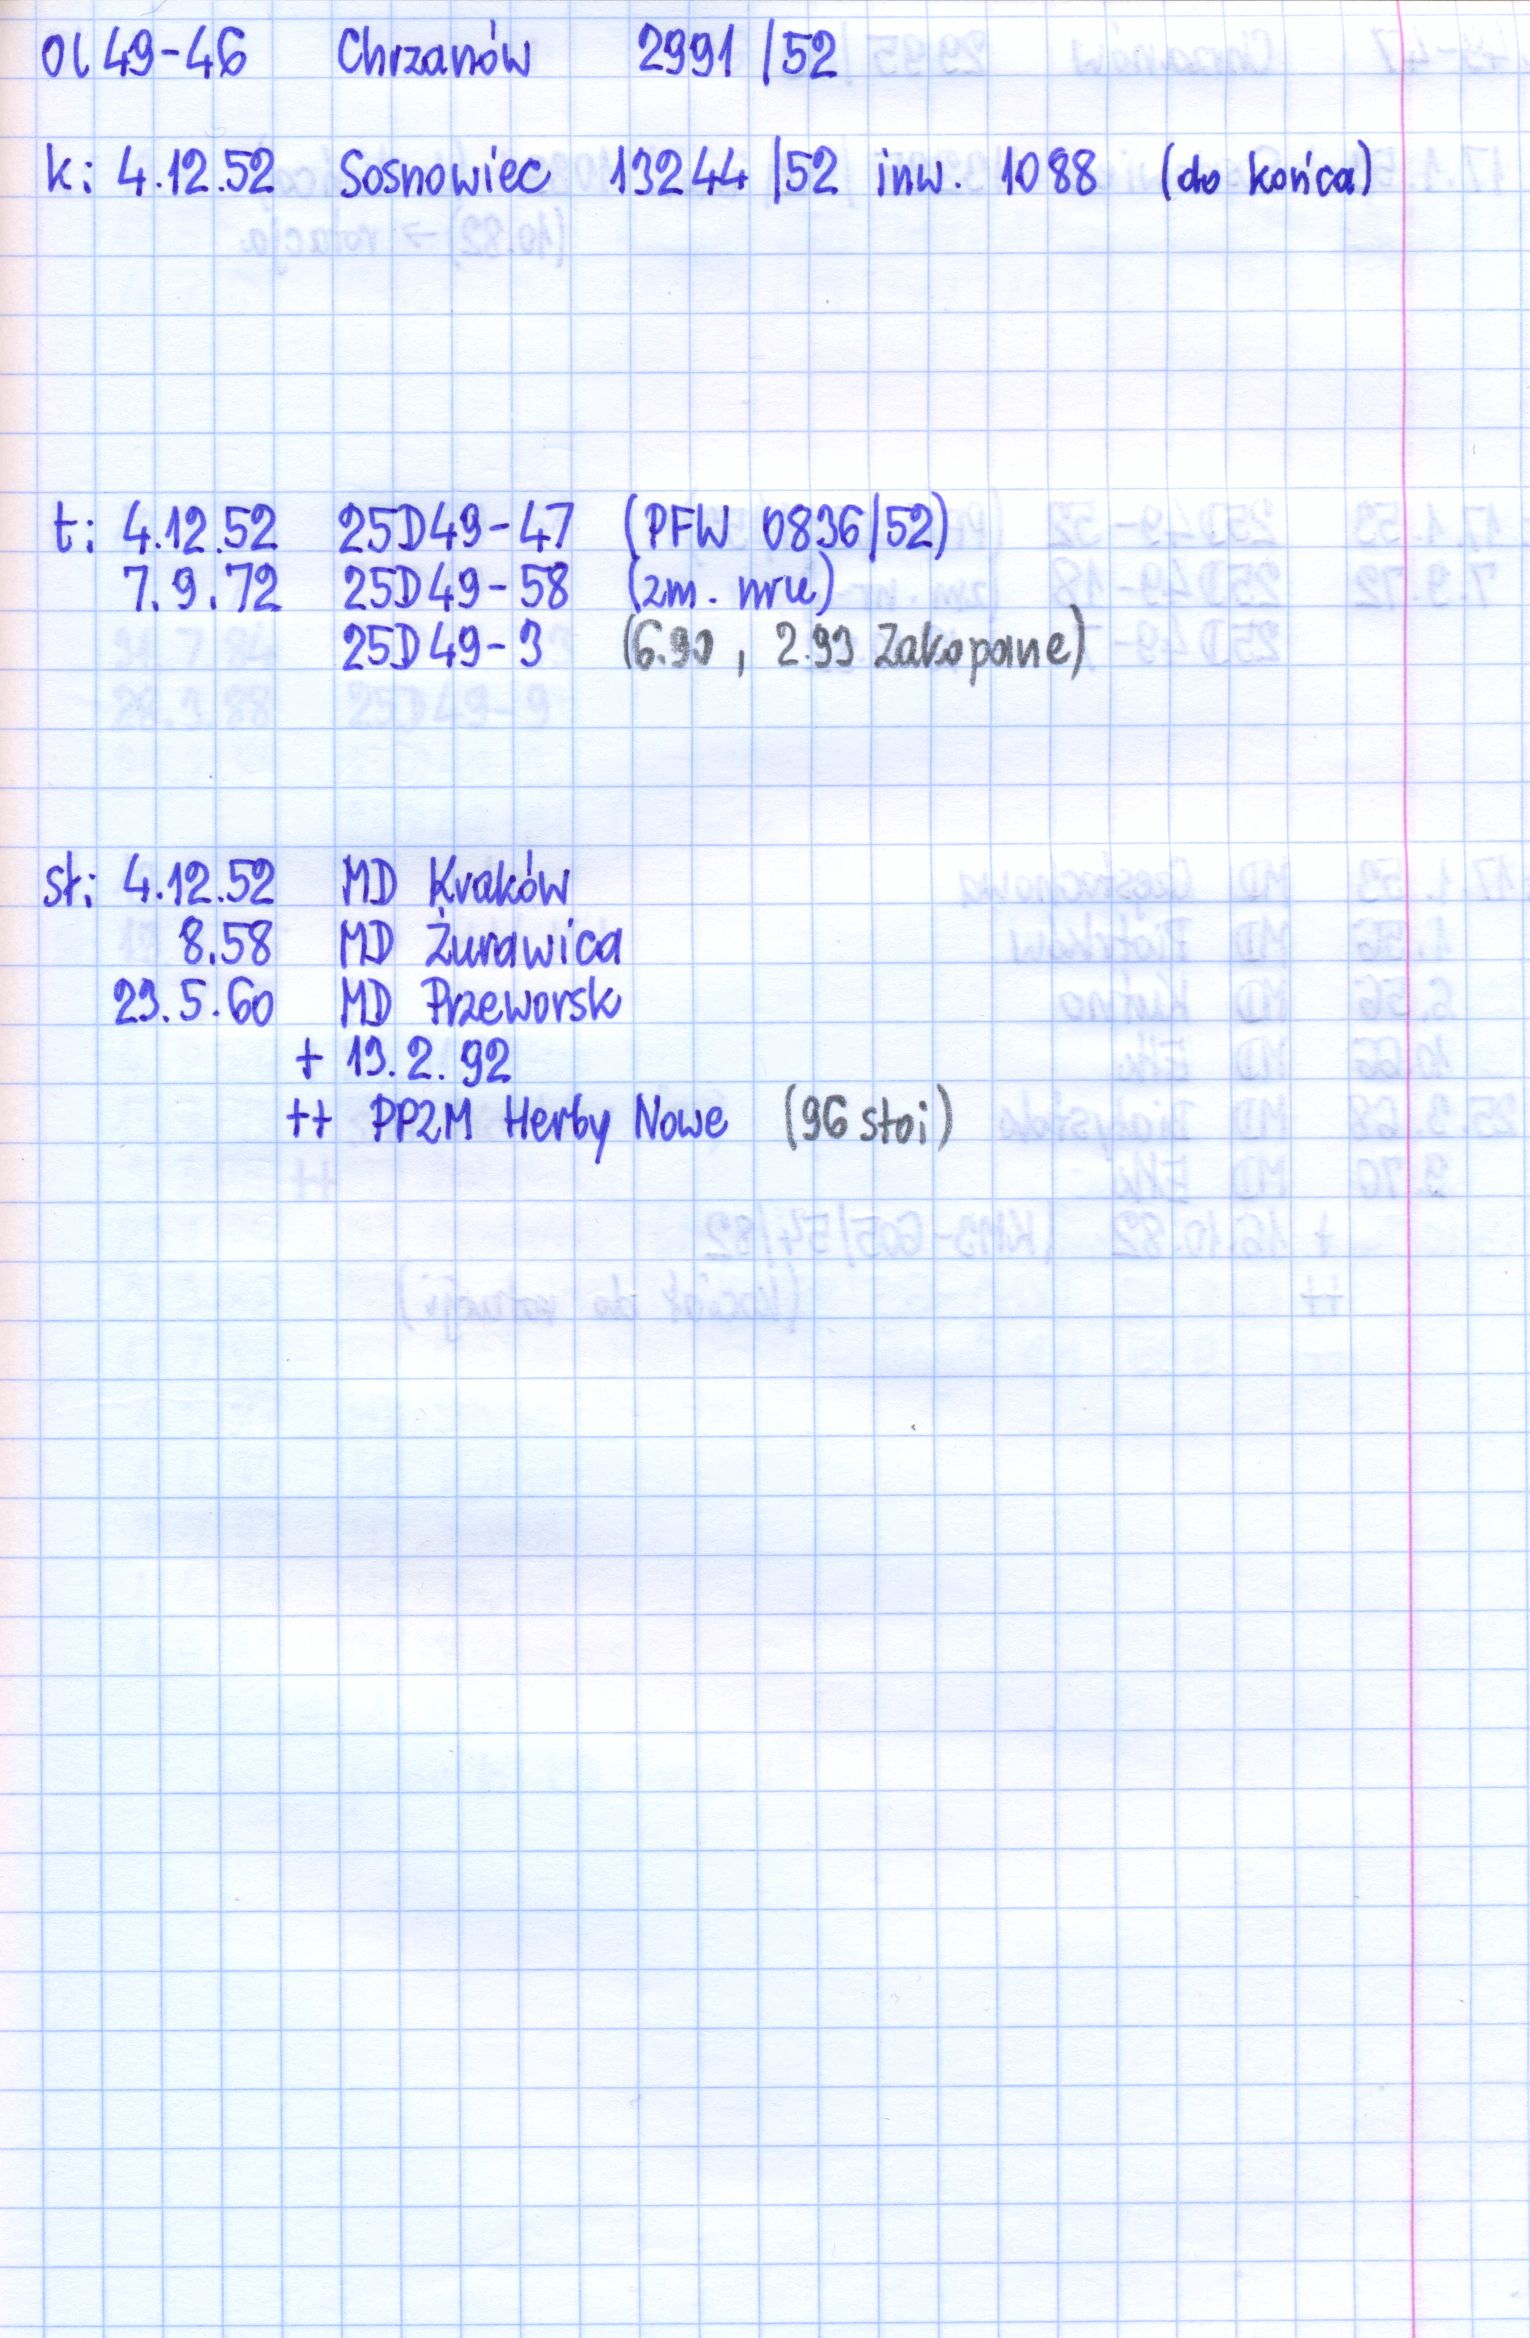 Ol49-46 Chrzanów 2991/52
k: 4.12.52 Sosnowiec 13244/52 inw. 1088 (do końca)
t: 4.12.52 25D49-47 (PFW 0836/52)
7.9.72 25D49-58 (zm. nru)
25D49-3 (6.90, 2.93 Zakopane)
sł: 4.12.52 MD Kraków
8.58 MD Żurawica
23.5.60 MD Przeworsk
+ 13.2.92
++ PPZM Herby Nowe (96 stoi)